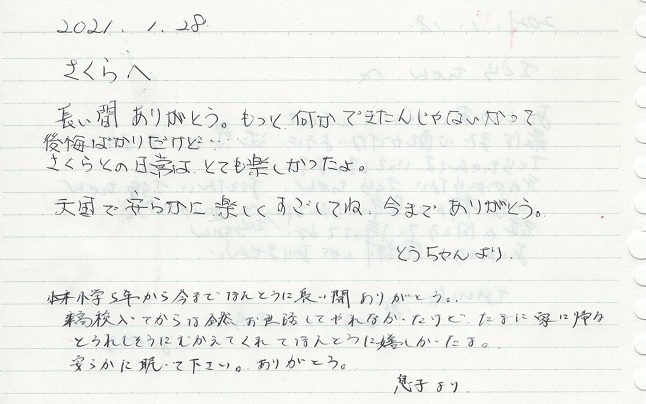 2021. 1. 28
さくらへ
長い間 ありがとう。もっと何かできたんじゃないかって
後悔ばかりだけど…
さくらとの日常は、とても楽しかったよ。
天国で安らかに楽しくすごしてね。今までありがとう。
とうちゃんより。
小学5年から今までほんとうに長い間ありがとう。
高校入ってからは全然お世話してやれなかったけど、たまに家に帰る
とうれしそうにむかえてくれてほんとうに嬉しかったよ。
安らかに眠って下さい。ありがとう。
息子より